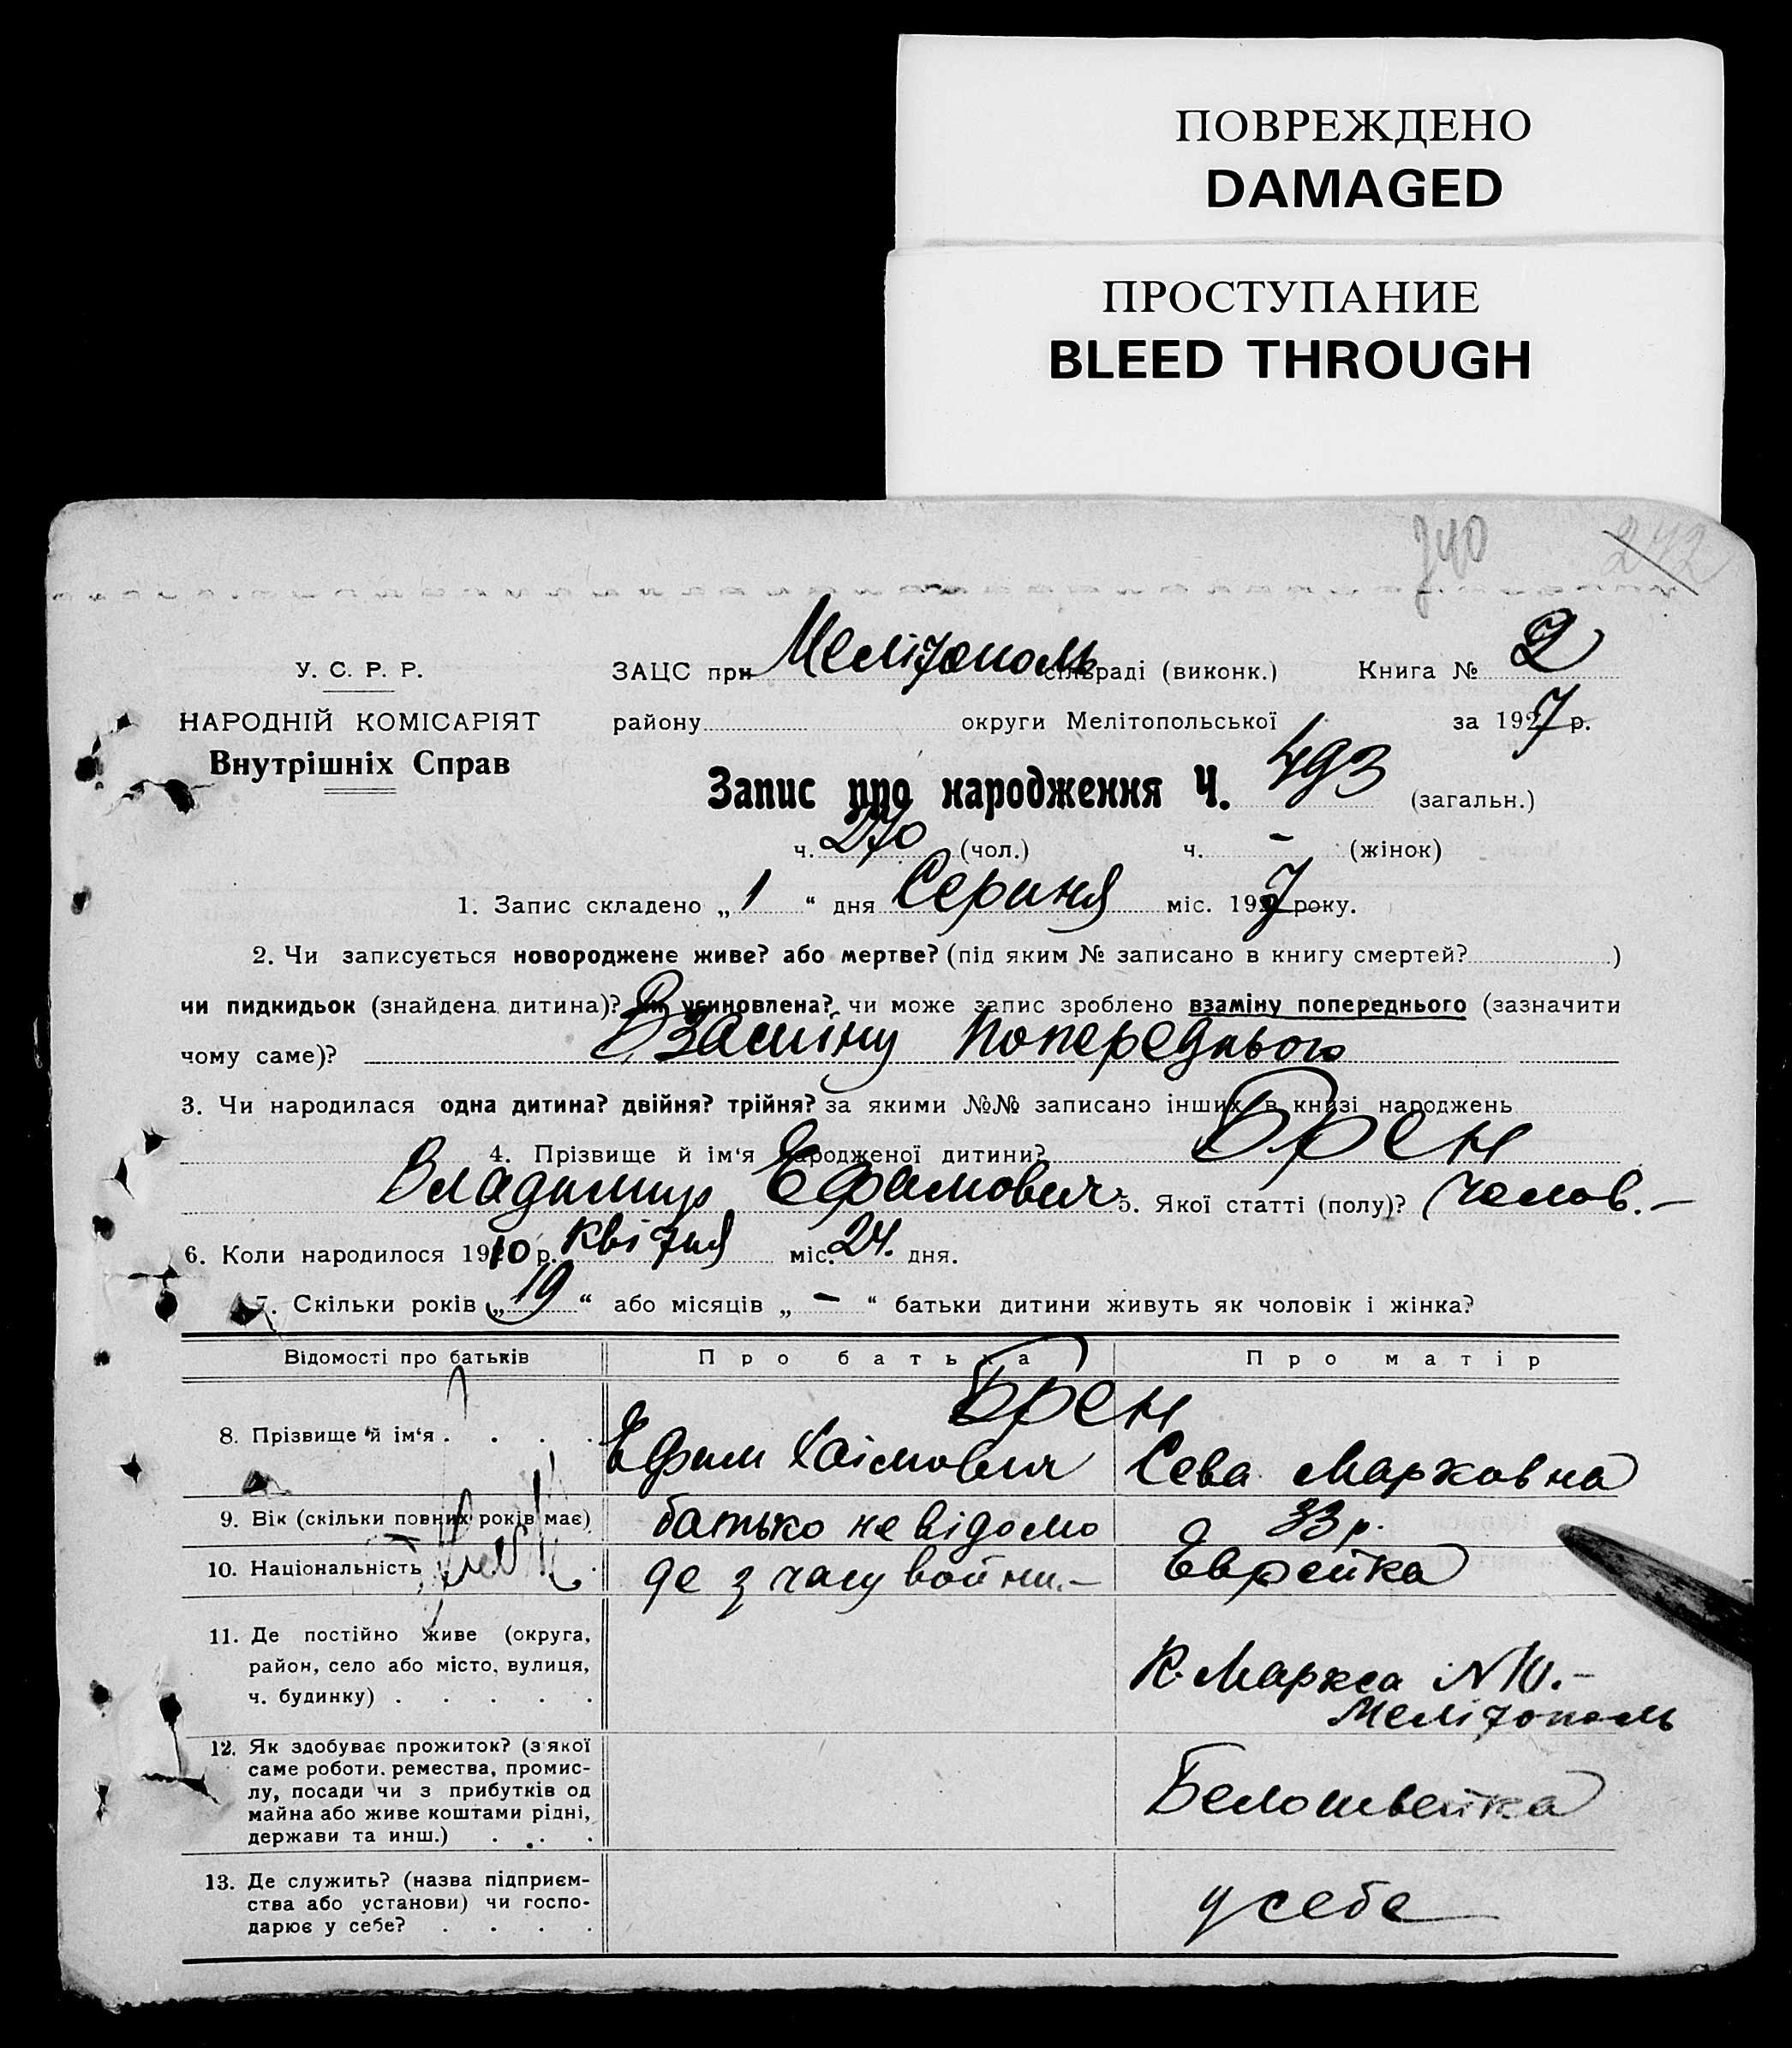 ПОВРЕЖДЕНО
DAMAGED
ПРОСТУПАНИЕ
BLEED THROUGH
240 242
У. С. Р. Р.
НАРОДНІЙ КОМІСАРІЯТ
Внутрішніх Справ
ЗАЦС при Мелітополь сільраді (виконк.) Книга № 2
району округи Мелітопольської за 1927 р.
Запис про народження Ч. 493 (загальн.)
ч. 270 (чол.) ч. - (жінок)
1. Запис складено „ 1 “ дня Серпня міс. 1927 року.
2. Чи записується новороджене живе? або мертве? (під яким № записано в книгу смертей? )
чи пидкидьок (знайдена дитина)? чи усиновлена? чи може запис зроблено взаміну попереднього (зазначити
чому саме)? Взаміну попереднього
3. Чи народилася одна дитина? двійня? трійня? за якими №№ записано інших в книзі народжень
4. Прізвище й ім‘я народженої дитини? Брен
Владимир Ефимович 5. Якої статті (полу)? Чолов. -
6. Коли народилося 1910 р. квітня міс. 24. дня.
7. Скільки років „ 19 “ або місяців „ - “ батьки дитини живуть як чоловік і жінка?
Відомості про батьків Про батька Про матір
Брен
8. Прізвище й ім‘я . . . . Ефим Хаімович Сева Марковна
9. Вік (скільки повних років має) батько невідомо 33 р.
10. Національність де з часу войни. - Еврейка
11. Де постійно живе (округа,
район, село або місто, вулиця,
ч. будинку) . . . . .
К. Маркса N 10. -
Мелітополь
12. Як здобуває прожиток? (з якої
саме роботи. ремества, промис-
лу, посади чи з прибутків од
майна або живе коштами рідні,
держави та инш.) . . .
Белошвейка
13. Де служить? (назва підприєм-
ства або установи) чи госпо-
дарює у себе? . . . .
у себе